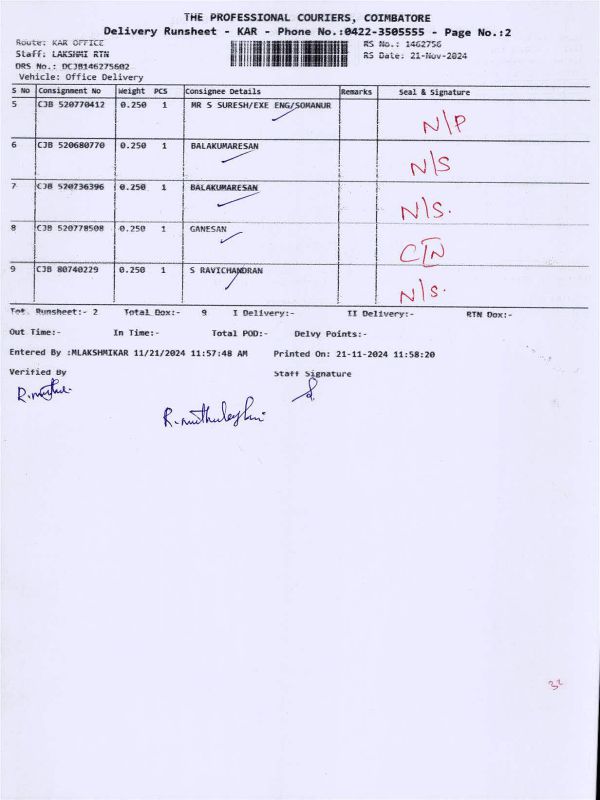 THE PROFESSIONAL COURIERS, COIMBATORE
Delivery Runsheet - KAR - Phone No.:0422-3505555 - Page No.:2
Route: KAR OFFICE
RS No.: 1462756
Staff: LAKSHMI RTN
RS Date: 21-Nov-2024
DRS No.: DCJB146275602
Vehicle: Office Delivery
S No Consignment No Weight PCS Consignee Details Remarks Seal & Signature
5 CJB 520770412 0.250 1 MR S SURESH/EXE ENG/SOMANUR N/P
6 CJB 520680770 0.250 1 BALAKUMARESAN N/S
7 CJB 520736396 0.250 1 BALAKUMARESAN N/S.
8 CJB 520778508 0.250 1 GANESAN
9 CJB 80740229 0.250 1 S RAVICHANDRAN N/S.
Tot. Runsheet:- 2 Total Dox:- 9 I Delivery:- II Delivery:- RTN Dox:-
Out Time:- In Time:- Total POD:- Delvy Points:-
Entered By :MLAKSHMIKAR 11/21/2024 11:57:48 AM Printed On: 21-11-2024 11:58:20
Verified By Staff Signature
32